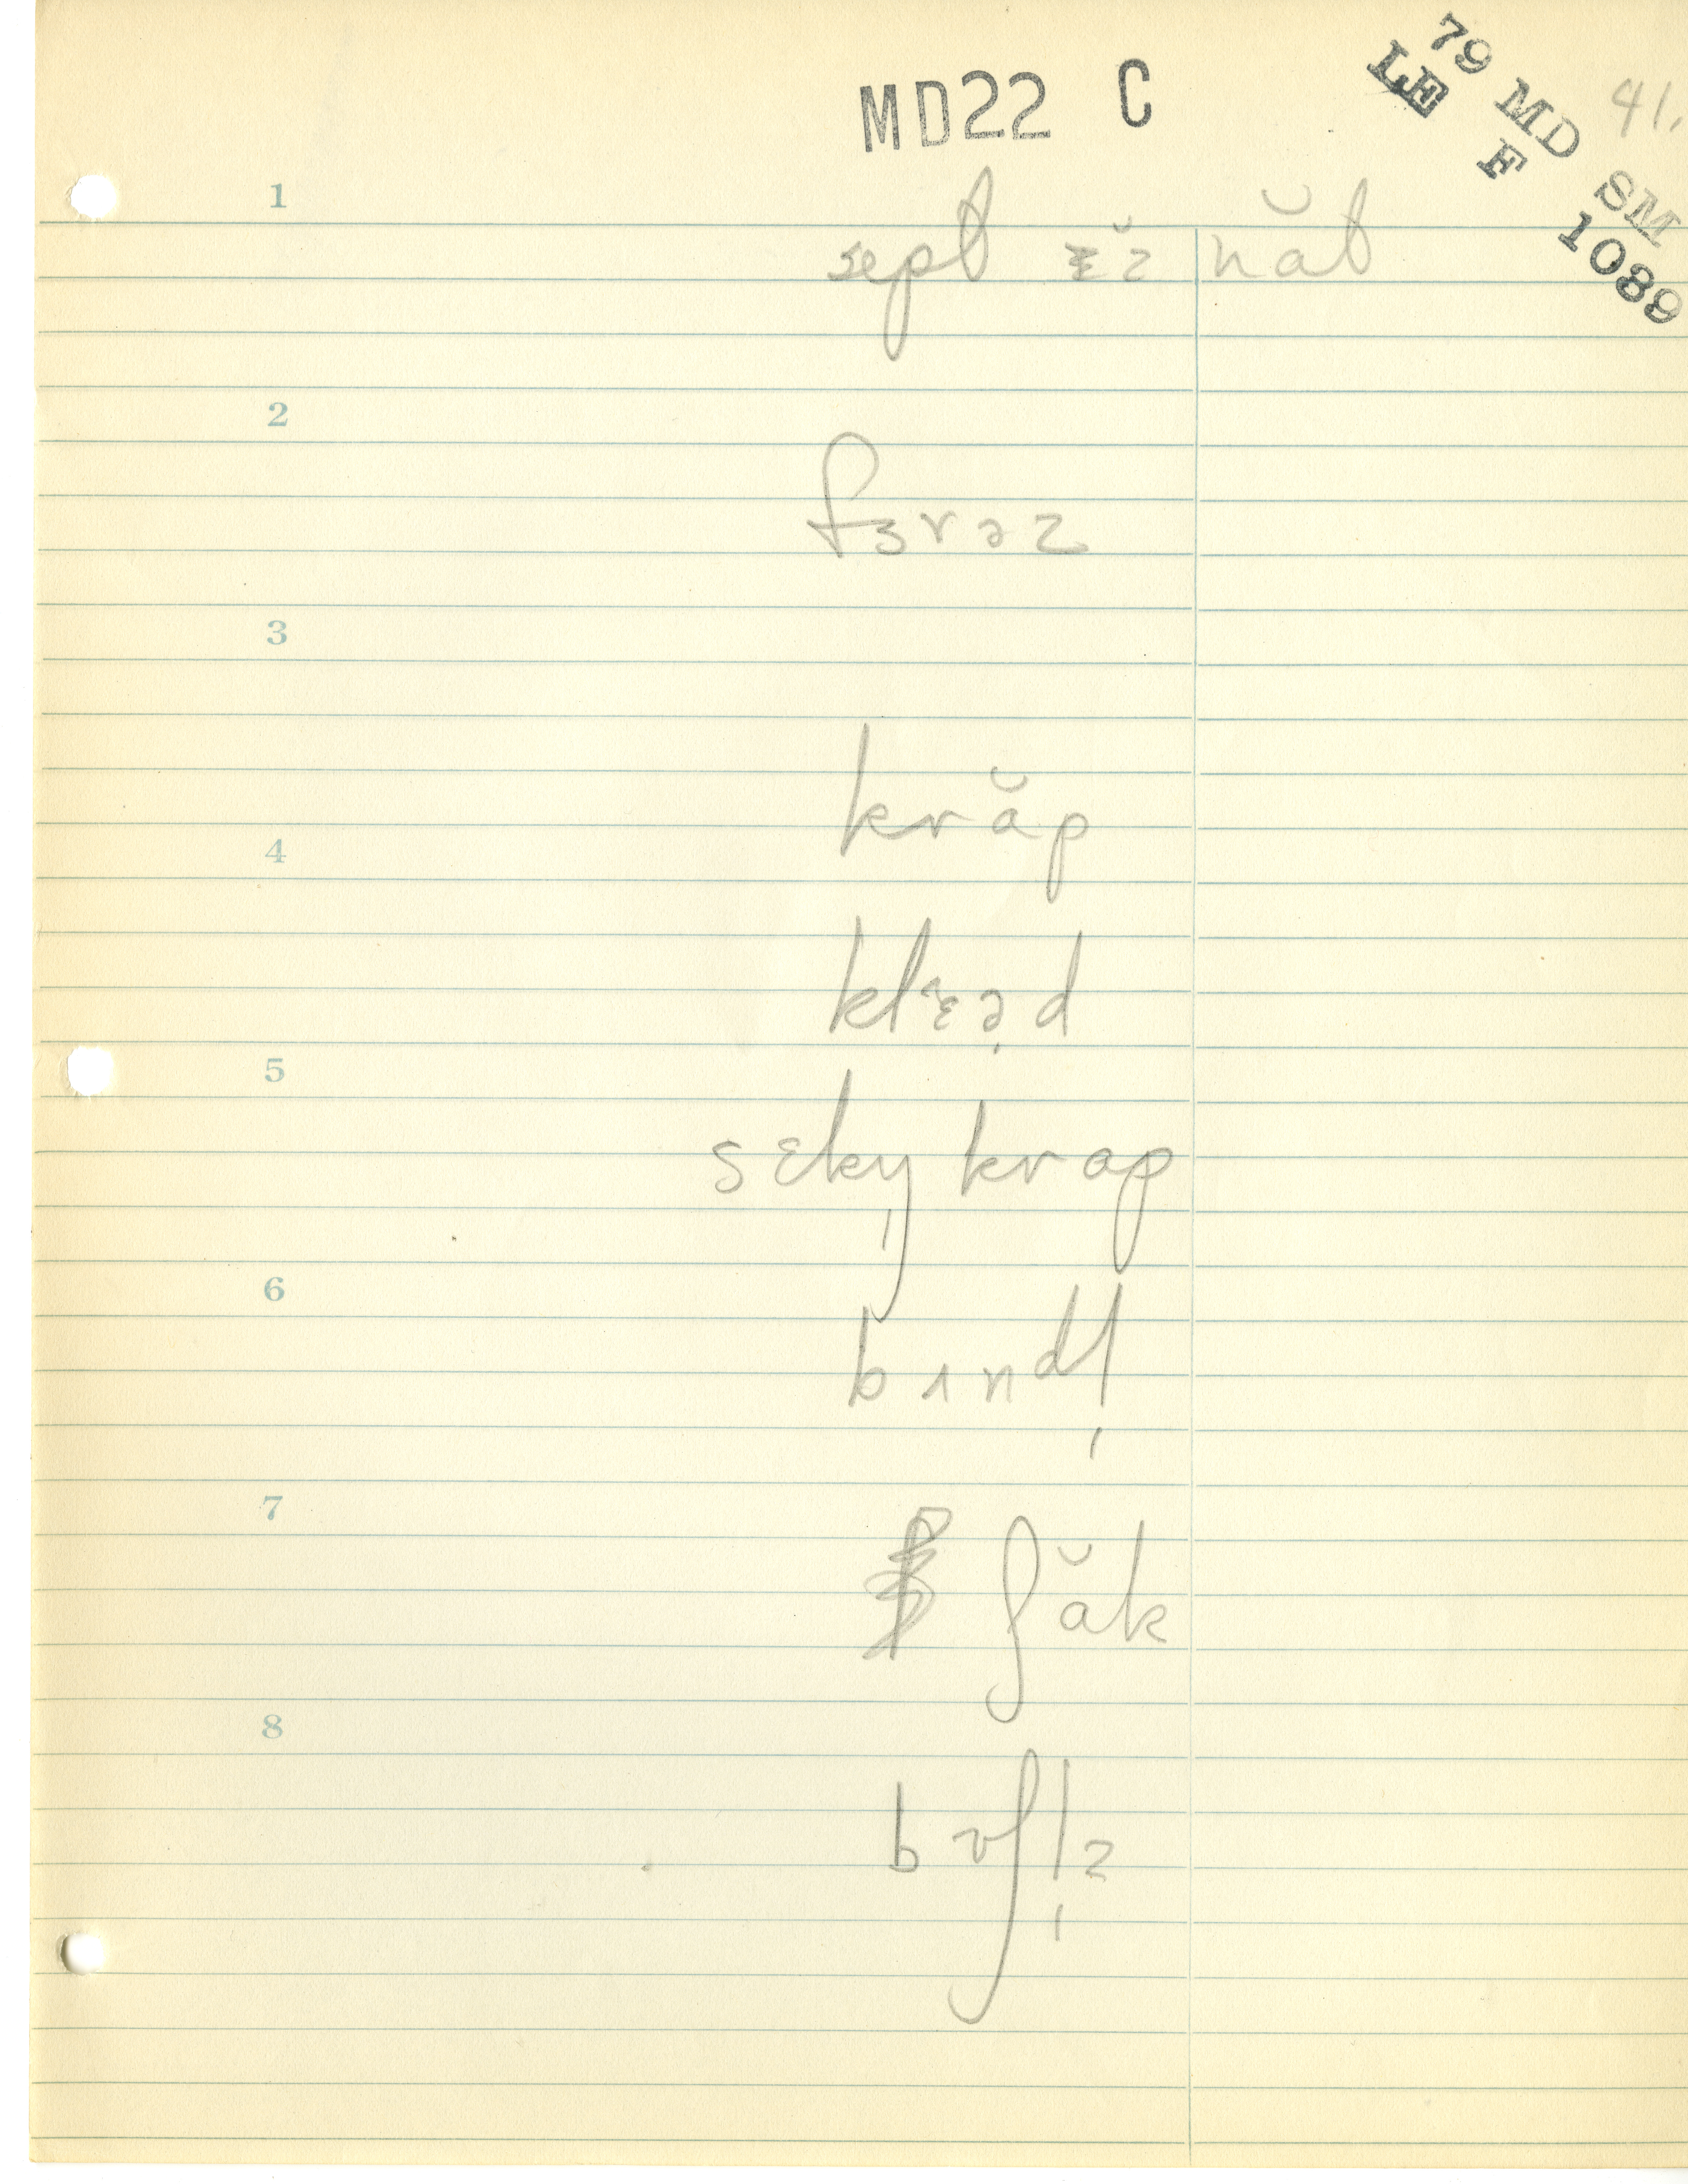 MD22 C
79 MD SM 41.
LE F 1089
1
năt
2
fɜrəz
3
krăp
4
klɛə̣d
5
sɛkn̩ krap
6
bʌndl̩
7
ʃăk
8
bʊʃl̩z